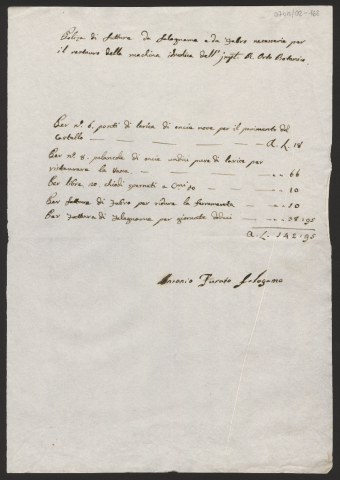 Poliza di fattura da Falegname e da Fabro necessaria per
il restauro della machina idraulica dell' I. R. Orto Botanico
Per n.° 6. ponti di larice di oncie nove per il pavimento del
Castello — — — — — A. L. 18
Per n.° 8. palancole di oncie undici pure di larice per
ristaurare la vasca — — — — 66
Per libre 10. chiodi 10 — — — 10
Per fattura di Fabro per ridure la feramenta — — 10
Per Fattura di Falegname per giornate dodici — — 38:95
A. L. 142:95
Antonio Falegname